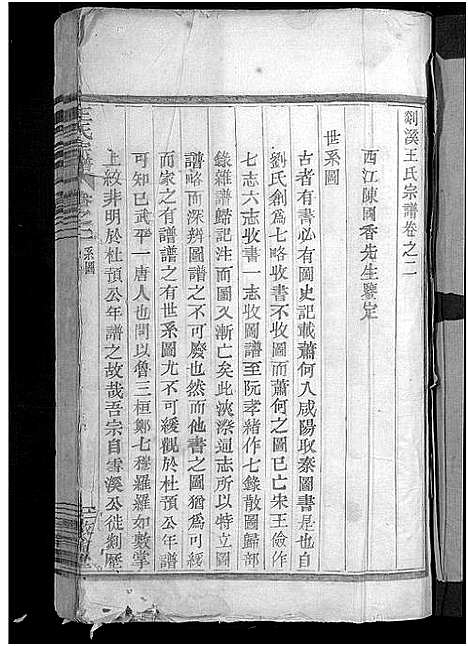 剡溪王氏宗譜卷之二
西江陳國香先生鑒定
世系圖
古者有書必有圖史記載蕭何入咸陽收秦圖書是也自
劉氏創爲七略收書不收圖而蕭何之圖已亡宋王儉作
七志六志收書一志收圖譜至阮孝緒作七錄散圖歸部
錄雜譜歸記注而圖又漸亡矣此浹漈通志所以特立圖
譜略而深辨圖譜之不可廢也然而他書之圖猶爲可緩
而家之有譜譜之有世系圖尤不可緩觀於杜預公年譜
可知已武平一唐人也問以魯三桓鄭七穆羅羅如數掌
上紋非明於杜預公年譜之故哉吾宗自雪溪公徙剡歷
王氏宗譜
卷之二
系圖